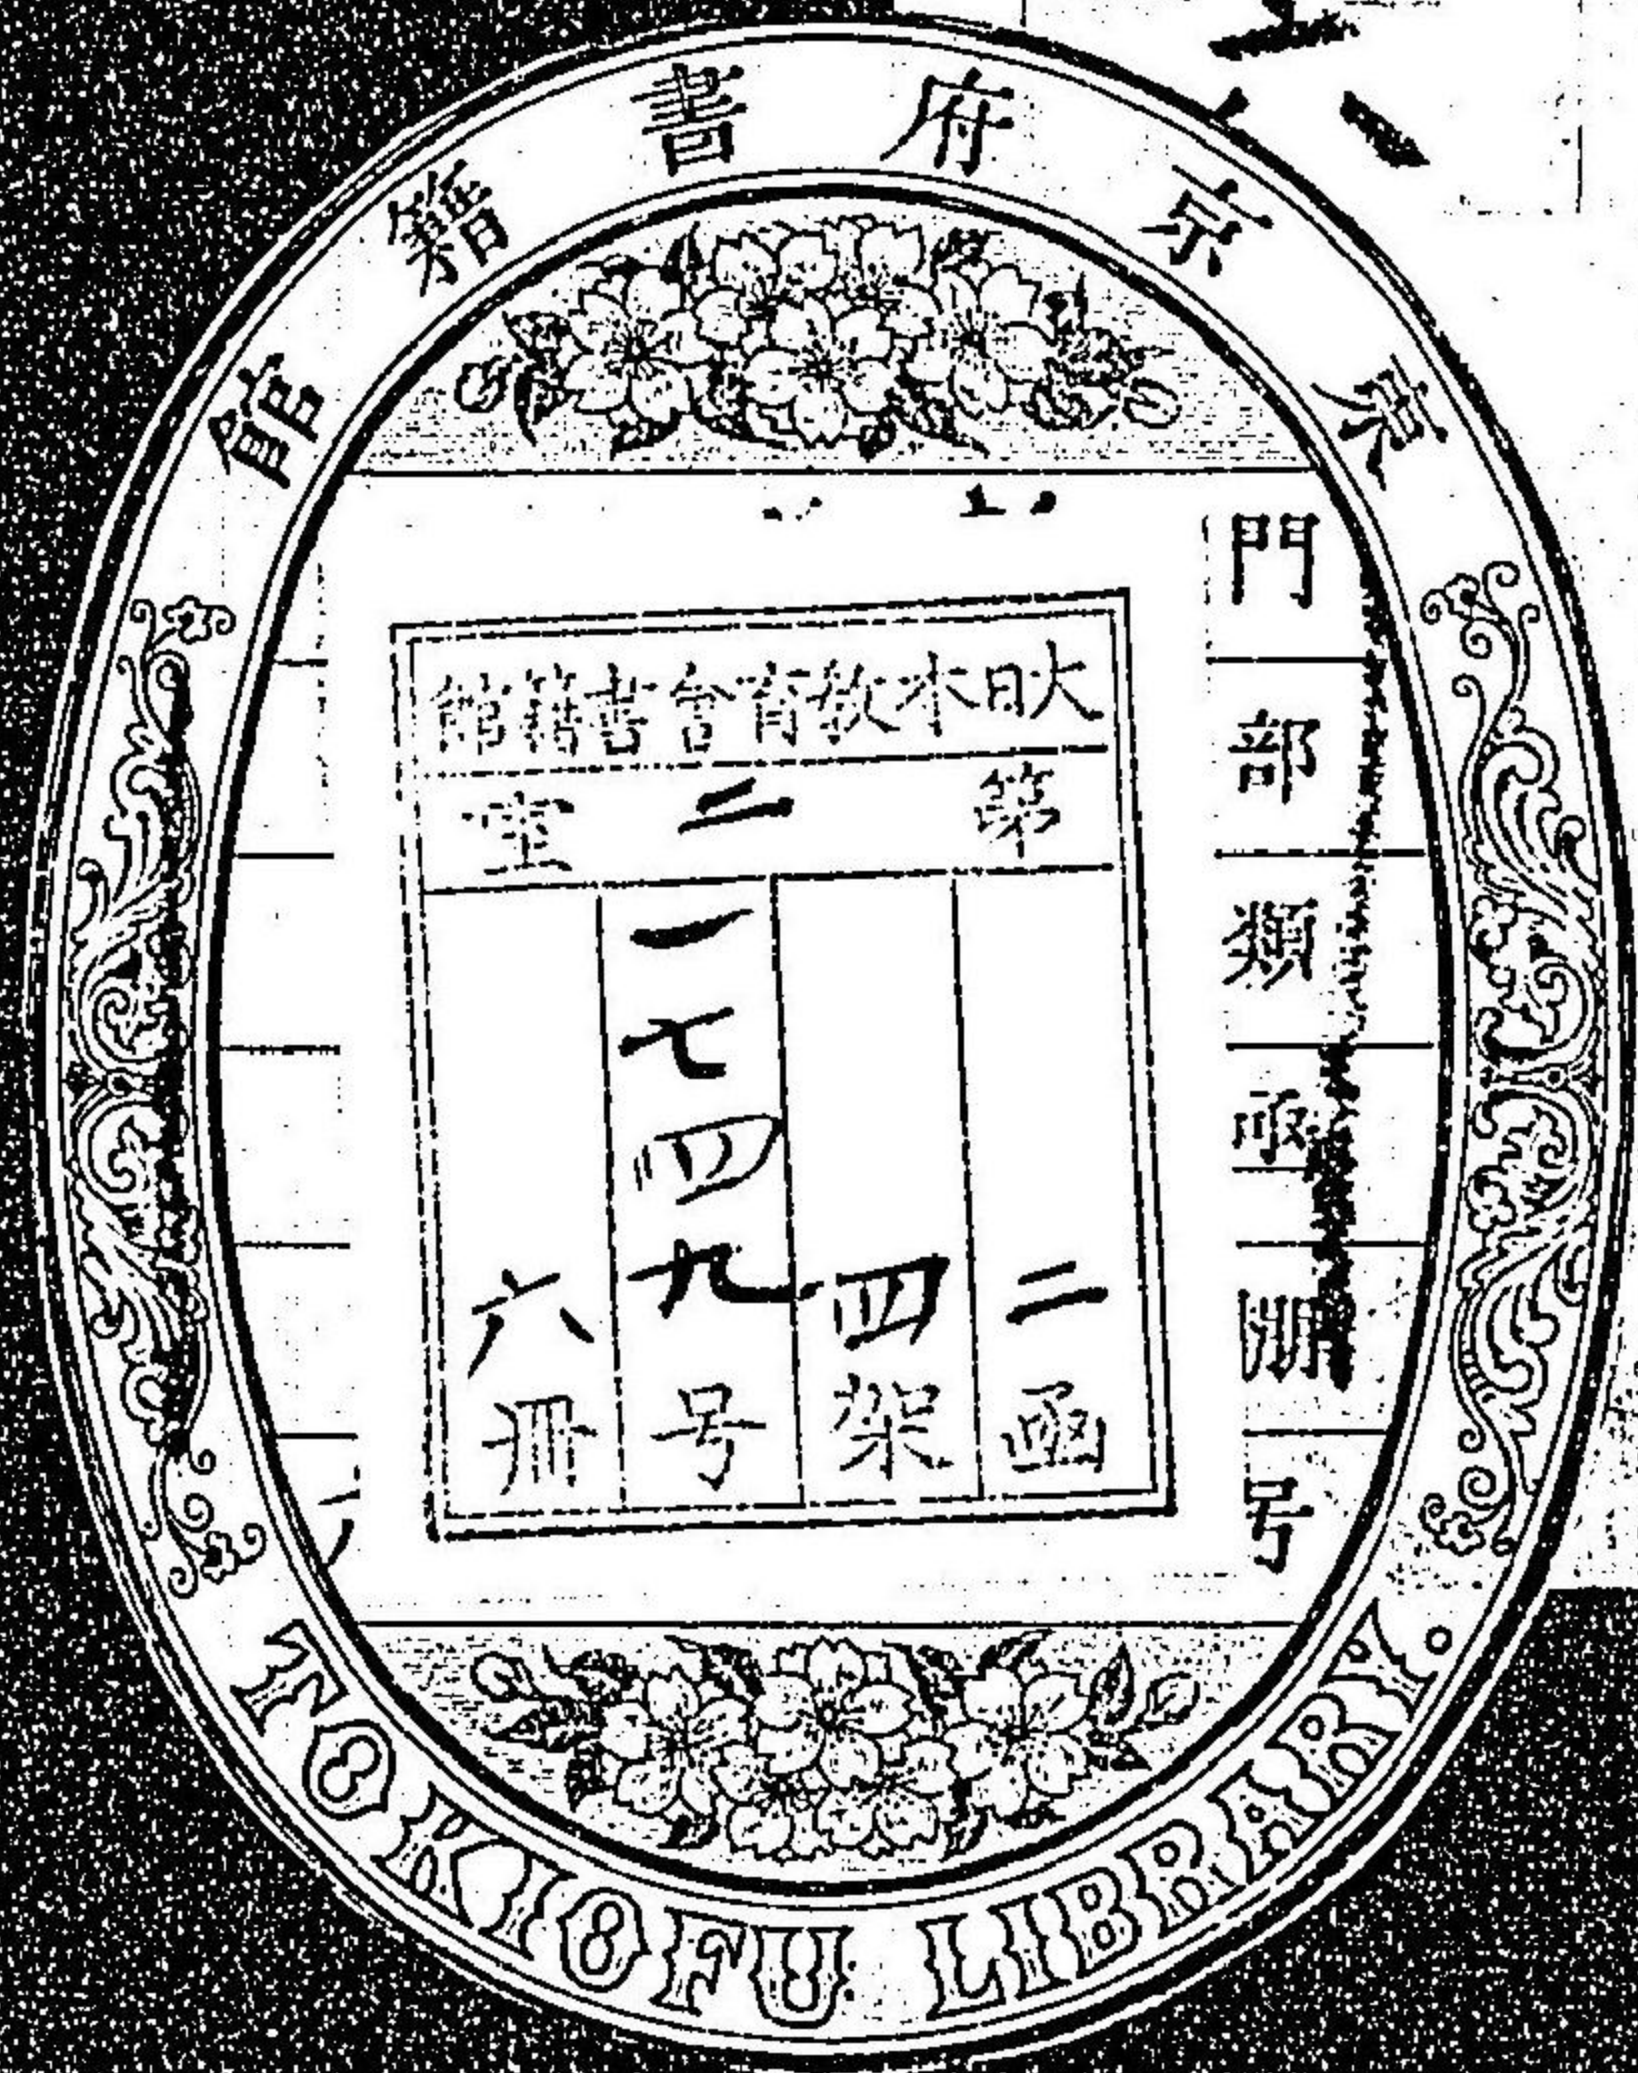 東京府書籍館
門
部
類
函
冊
号
大日本教育會書籍館
第二室
二函
四架
一七四九号
六冊
TOKIOFU LIBRARY.